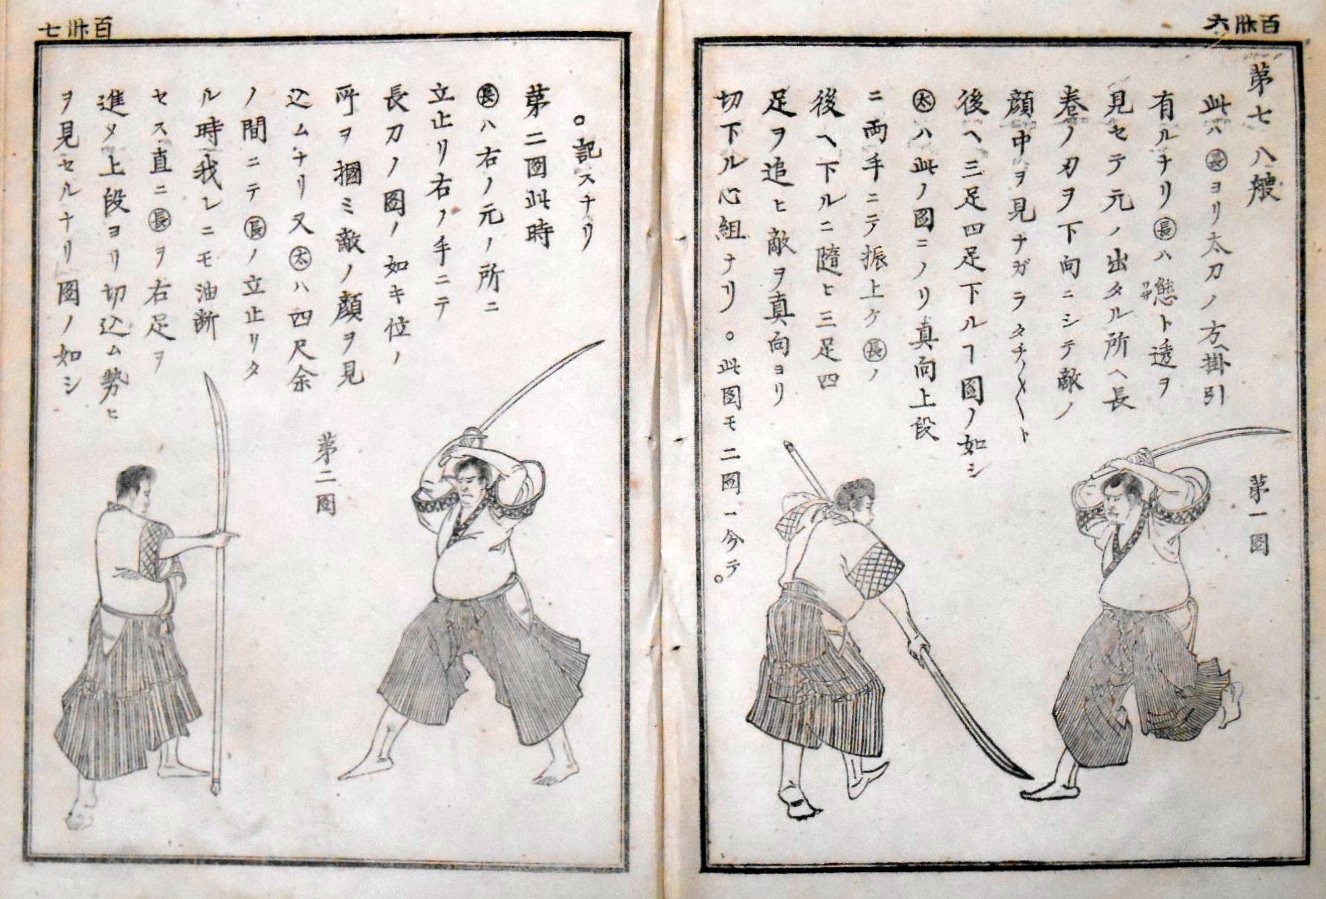 百卅六
第七八艘
此ハ㊎ヨリ太刀ノ方掛引
有ルナリ長ハ態ト透ヲ
ワザ
見セテ元ノ出タル所ヘ長
巻ノ刃ヲ下向ニシテ敵ノ
顔中ヲ見ナガラタチ〱ト
後ヘ三足四足下ルヿ圖ノ如シ
太ハ此ノ圖ニノリ真向上段
ニ両手ニテ振上ケ長ノ
後ヘ下ルニ隨ヒ三足四
足ヲ追ヒ敵ヲ真向ヨリ
切下ル心組ナリ。此圖モ二圖ニ分テ。
第一圖
百卅七
。記スナリ
第二圖此時
長ハ右ノ元ノ所ニ
立止リ右ノ手ニテ
長刀ノ圖ノ如キ位ノ
所ヲ摑ミ敵ノ顔ヲ見
込ムナリ又太ハ四尺余
ノ間ニテ長ノ立止リタ
ル時我レニモ油断
セス直ニ長ヲ右足ヲ
進メ上段ヨリ切込ム勢ヒ
ヲ見セルナリ圖ノ如シ
第二圖